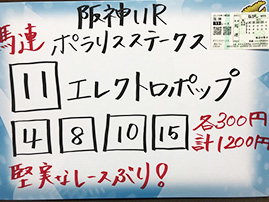 阪神11R
馬連 ポラリスステークス
11 エレクトロポップ
4 8 10 15 各300円
計1200円
堅実なレースぶり!